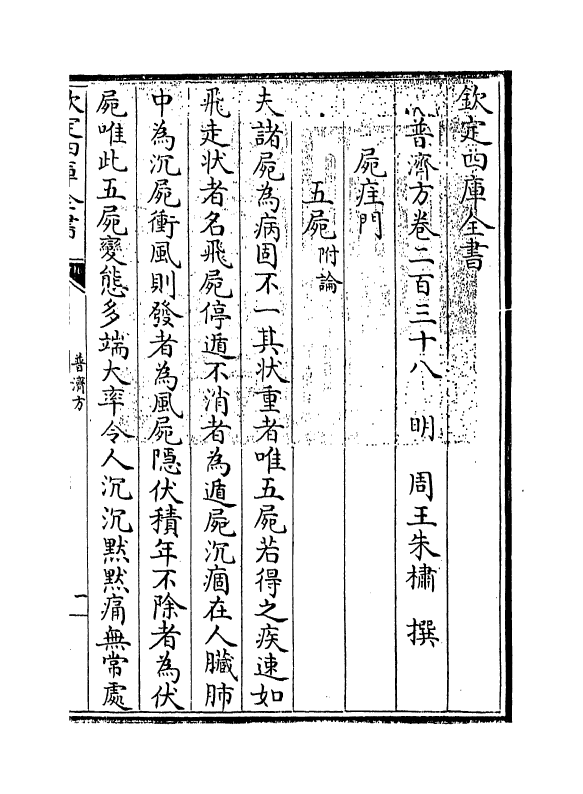 欽定四庫全書
普濟方卷二百三十八　明　周王朱橚　撰
屍疰門
五屍附論
夫諸屍為病固不一其狀重者唯五屍若得之疾速如
飛走狀者名飛屍停遁不消者為遁屍沉痼在人臟肺
中為沉屍衝風則發者為風屍隱伏積年不除者為伏
屍唯此五屍變態多端大率令人沉沉黙黙痛無常處
欽定四庫全書
普濟方